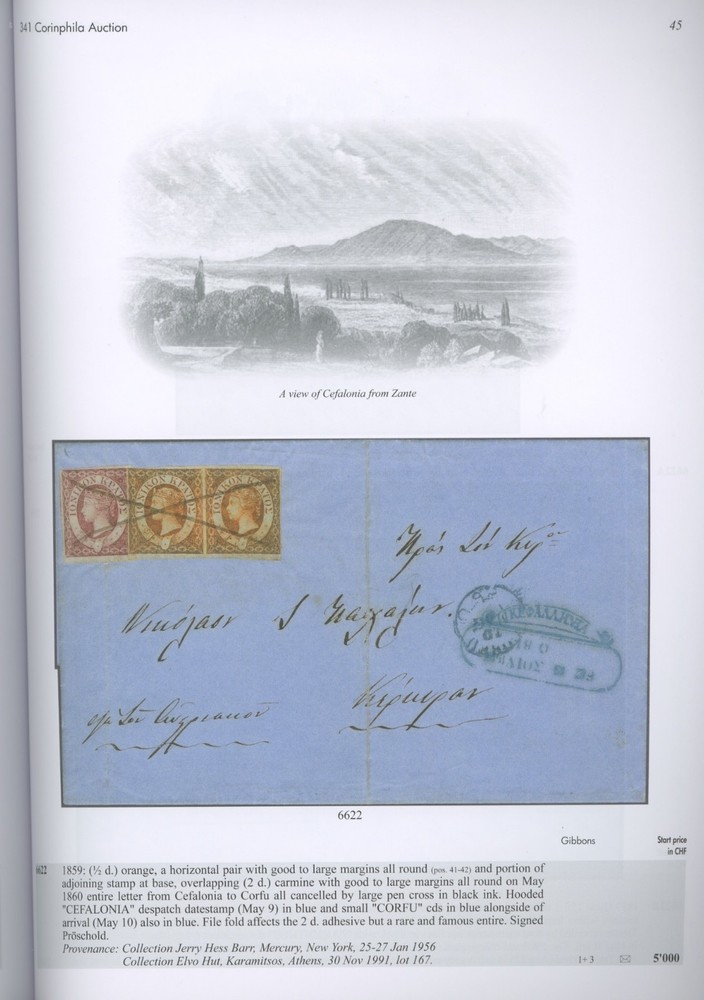 341 Corinphila Auction
45
A view of Cefalonia from Zante
ΙΟΝΙΚΟΝ ΚΡΑΤΟΣ ΙΟΝΙΚΟΝ ΚΡΑΤΟΣ ΙΟΝΙΚΟΝ ΚΡΑΤΟΣ
Πρός τόν Κύρ
Νικόλαον
Κέρκυραν
6622
Gibbons
Start price
in CHF
6622 1859: (½ d.) orange, a horizontal pair with good to large margins all round (pos. 41-42) and portion of
adjoining stamp at base, overlapping (2 d.) carmine with good to large margins all round on May
1860 entire letter from Cefalonia to Corfu all cancelled by large pen cross in black ink. Hooded
"CEFALONIA" despatch datestamp (May 9) in blue and small "CORFU" cds in blue alongside of
arrival (May 10) also in blue. File fold affects the 2 d. adhesive but a rare and famous entire. Signed
Pröschold.
Provenance: Collection Jerry Hess Barr, Mercury, New York, 25-27 Jan 1956
Collection Elvo Hut, Karamitsos, Athens, 30 Nov 1991, lot 167.
1+3 5'000